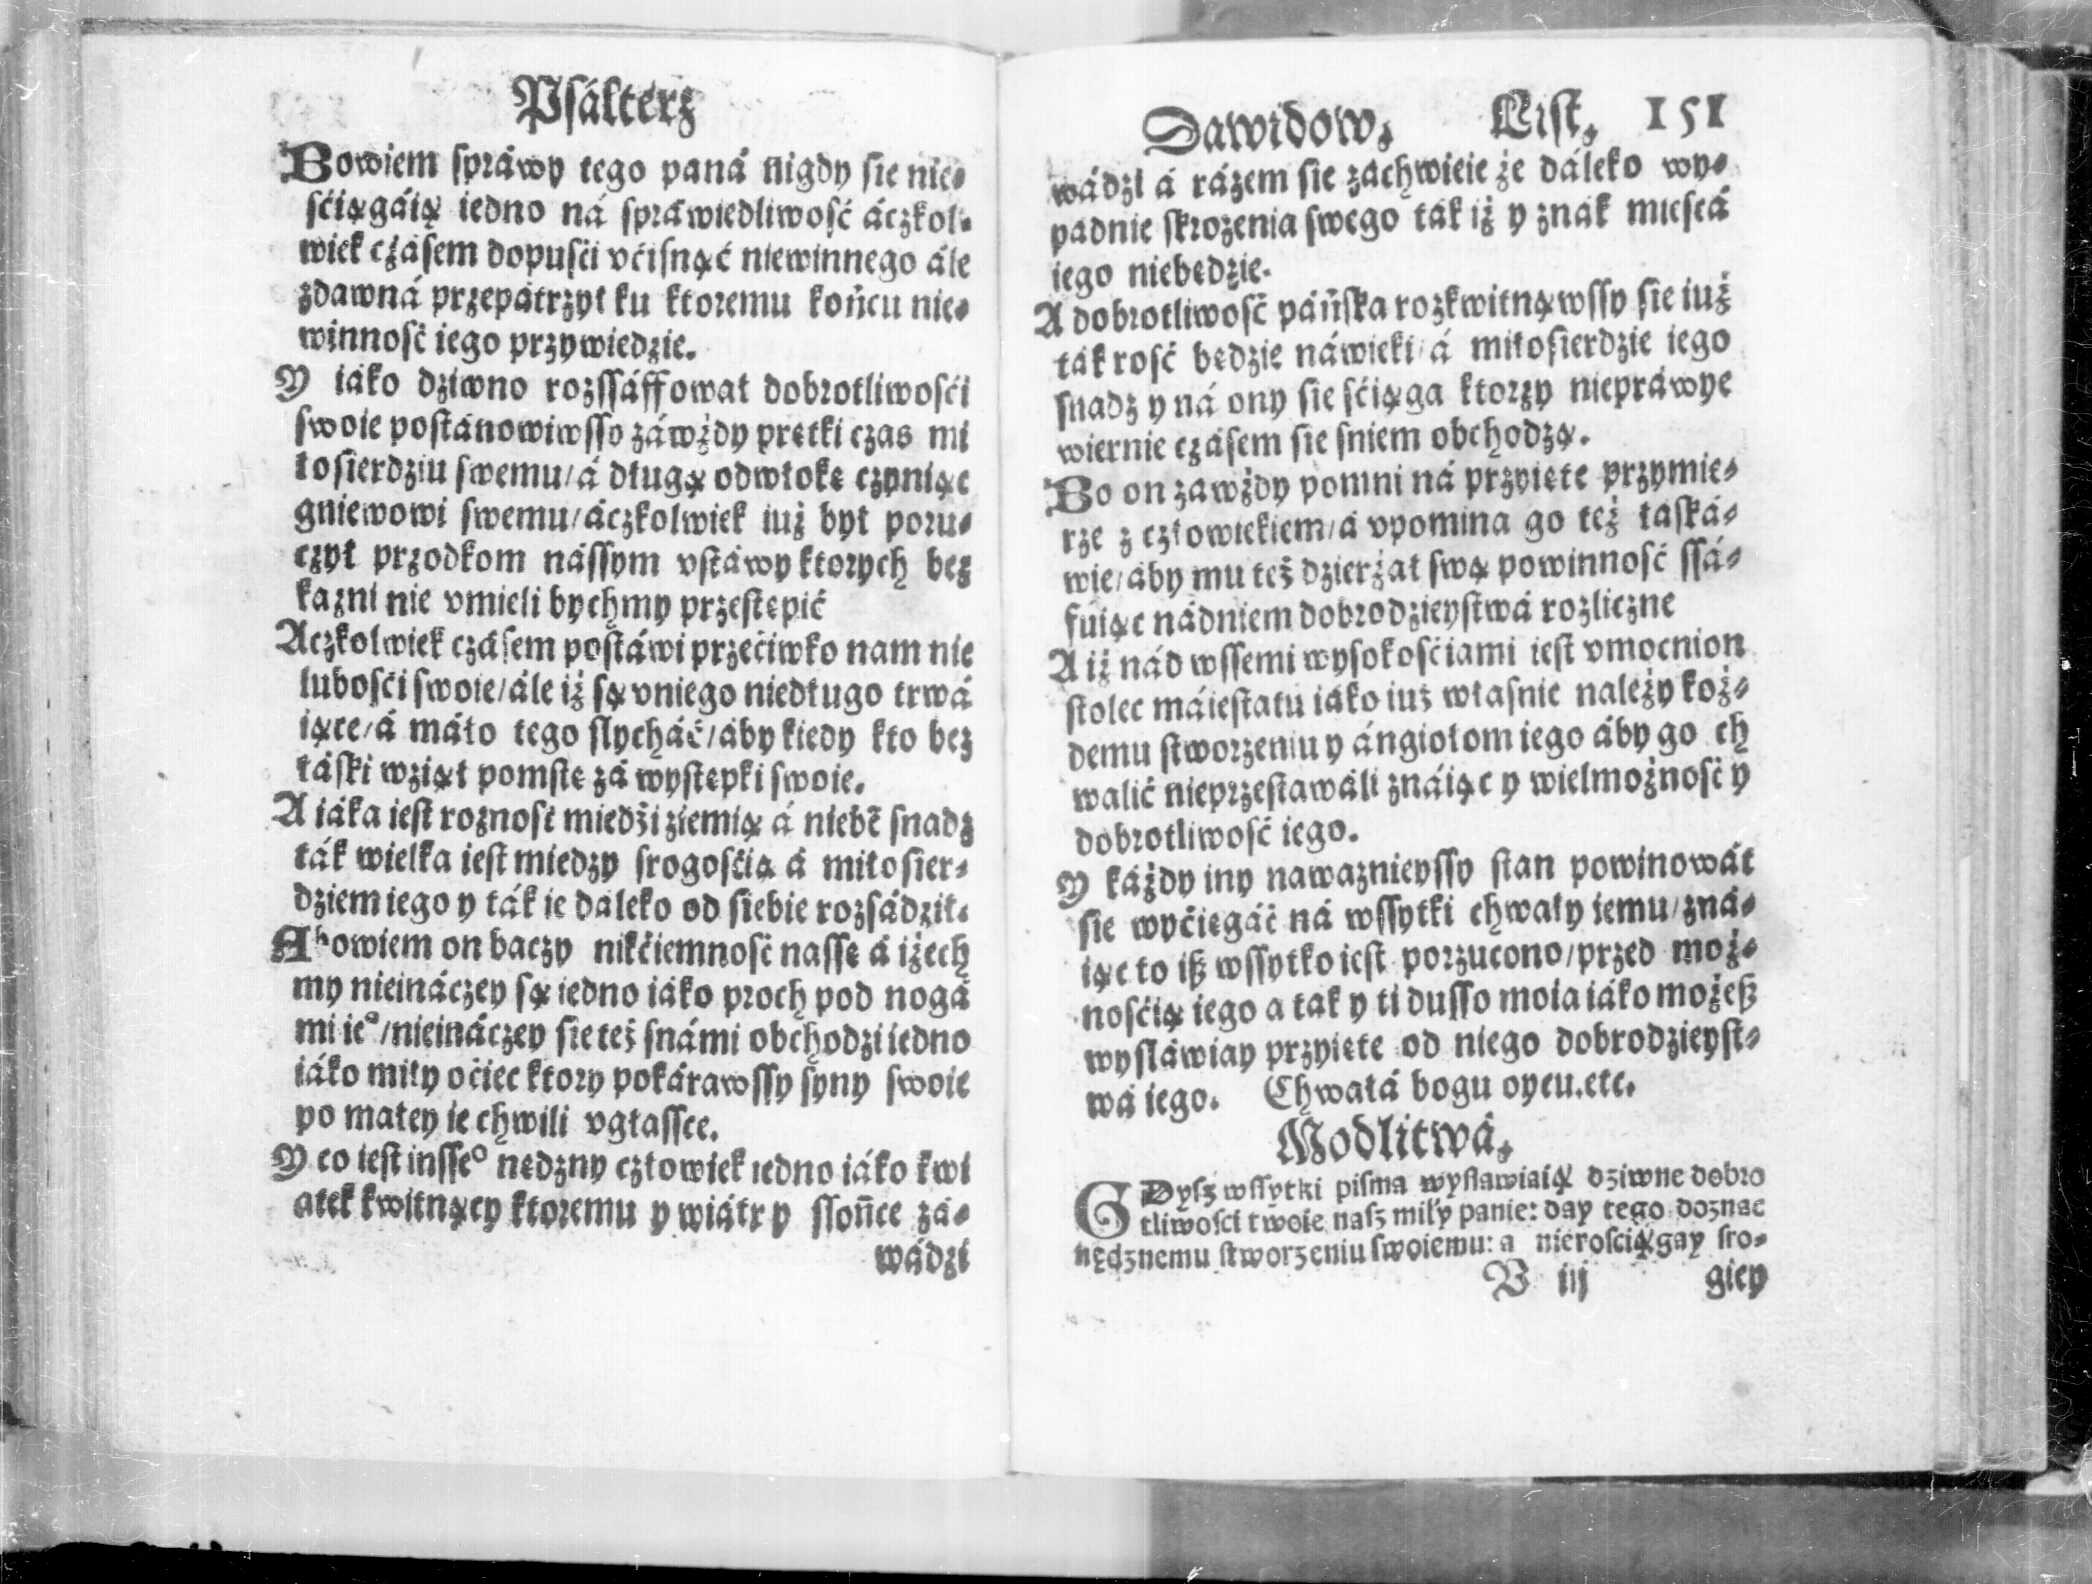 Psálterz
Bowiem spráwy tego paná nigdy sie nie-
śćiągáią iedno ná spráwiedliwość áczkol-
wiek czásem dopuśći vćisnąć niewinnego ále
zdawná przepátrzył ku ktoremu końcu nie-
winność iego przywiedzie.
Y iáko dziwno rozssáffował dobrotliwośći
swoie postánowiwsso záwżdy prętki czas mi
łosierdziu swemu/á długą odwłokę cżyniąc
gniewowi swemu/áczkolwiek iuż był poru-
czył przodkom nássym vstáwy ktorych bez
kazni nie vmieli bychmy przestępić
Aczkolwiek czásem postáwi przećiwko nam nie
lubośći swoie/ále iż są vniego niedługo trwá
iące/á máło tego slycháć/áby kiedy kto bez
łáski wziął pomstę zá występki swoie.
A iáka iest roznosć miedźi ziemią á niebē snadz
ták wielka iest miedzy srogośćią á miłosier-
dziem iego y ták ie dáleko od siebie rozsádził.
Abowiem on baczy nikćiemność nassę á iżech
my nieináczey są iedno iáko proch pod nogá
mi ie°/nieináczey sie też snámi obchodzi iedno
iáko miły oćiec ktory pokárawssy syny swoie
po małey ie chwili vgłassce.
Y co iest insse° nędzny człowiek iedno iáko kwi
atek kwitnący ktoremu y wiátr y słońce zá-
wádzi
Dawidow, List, 151
wádzi á rázem sie záchwieie że dáleko wy-
padnie skrożenia swego ták iż y znák miescá
iego niebędzie.
A dobrotliwość páńska rozkwitnąwssy sie iuż
ták rość będzie náwieki/á miłosierdzie iego
snadz y ná ony sie śćiąga ktorzy niepráwye
wiernie czásem sie sniem obchodzą.
Bo on záwżdy pomni ná przyięte przymie-
rze z człowiekiem/á vpomina go też łáská-
wie/áby mu też dzierżał swą powinność ssá-
fuiąc nádniem dobrodzieystwá rozliczne
A iż nád wssemi wysokośćiami iest vmocnion
stolec máiestatu iáko iuż własnie należy koż-
demu stworzeniu y ángiołom iego áby go ch
walić nieprzestawáli znáiąc y wielmożność y
dobrotliwość iego.
Y káżdy iny nawaznieyssy stan powinowát
sie wyćięgáć ná wssytki chwały iemu/zná-
iąc to iß wssytko iest porzucono/przed moż-
nośćią iego a tak y ti dusso moia iáko możeß
wysláwiay przyięte od niego dobrodzieyst-
wá iego. Chwałá bogu oycu.etc.
Modlitwá,
GDysz wssytki pisma wysławiaią dziwne dobro
tliwosci twoie nasz miły panie: day tego doznac
nędznemu stworzeniu swoiemu: a nierosciągay sro-
V iij giey